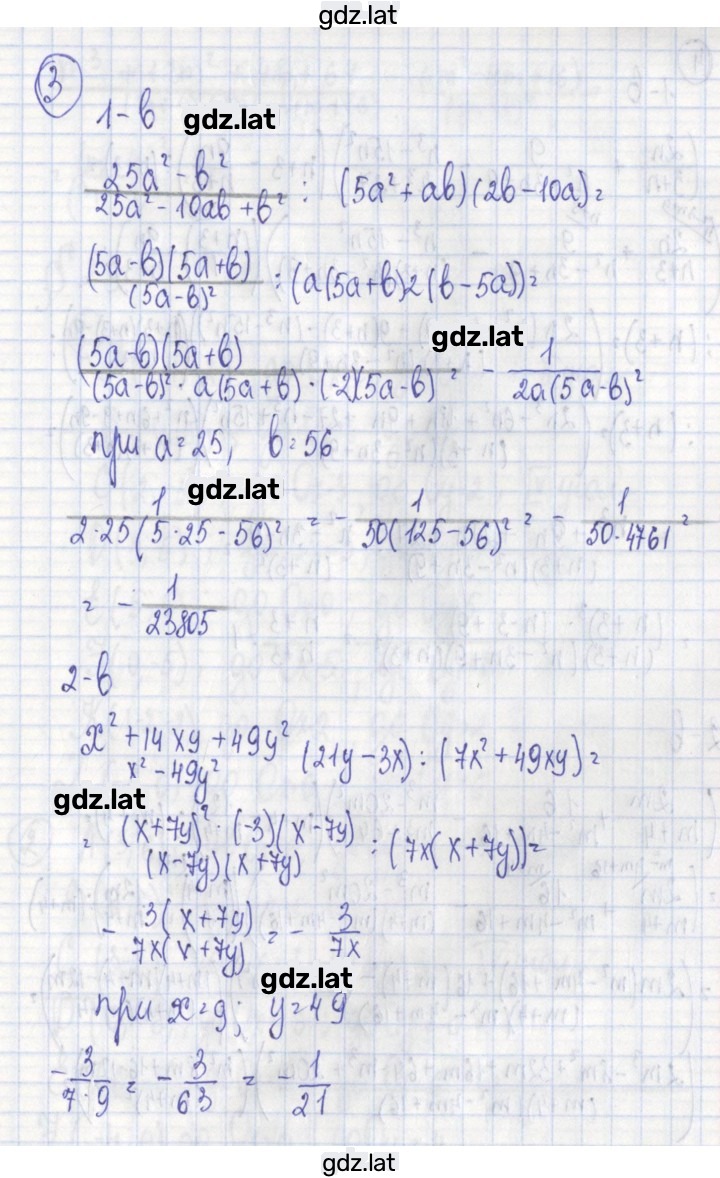 gdz.lat
3
1-в gdz.lat
(25a² - b²)/(25a² - 10ab + b²) : (5a² + ab)(2b - 10a) =
((5a-b)(5a+b))/((5a-b)²) : (a(5a+b)2(b-5a)) =
gdz.lat
((5a-b)(5a+b))/((5a-b)² · a(5a+b) · (-2)(5a-b)) = - 1/(2a(5a-b)²)
при a=25, b=56
gdz.lat
1/(2·25(5·25-56)²) = - 1/(50(125-56)²) = - 1/(50·4761) =
= - 1/23805
2-в
(x² + 14xy + 49y²)/(x² - 49y²) (21y - 3x) : (7x² + 49xy) =
gdz.lat
= ((x+7y)² · (-3)(x-7y))/((x-7y)(x+7y)) : (7x(x+7y)) =
- (3(x+7y))/(7x(x+7y)) = - 3/(7x)
gdz.lat
при x=9; y=49
- 3/(7·9) = - 3/63 = - 1/21
gdz.lat